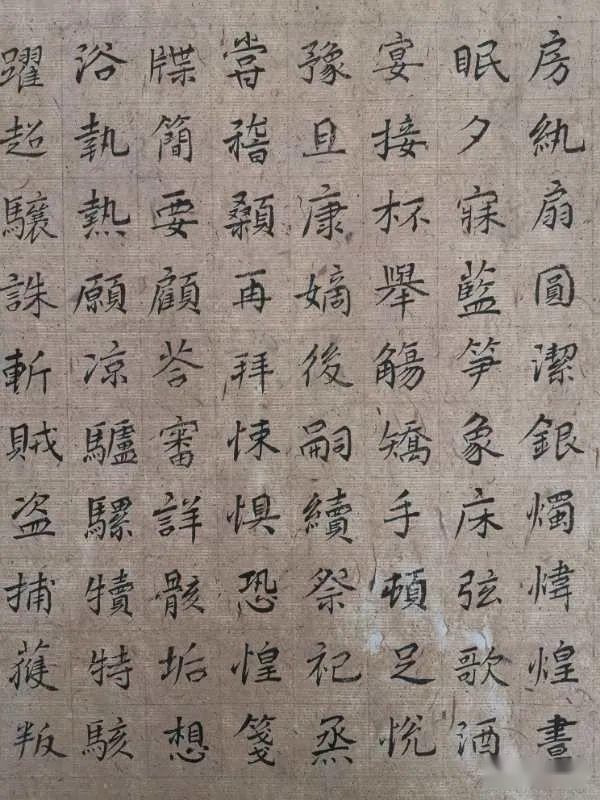 房紈扇圓潔銀燭煒煌晝
眠夕寐藍笋象床弦歌酒
宴接杯舉觴矯手頓足悅
豫且康嫡後嗣續祭祀烝
甞稽顙再拜悚惧恐惶箋
牒簡要顧荅審詳骸垢想
浴執熱願凉驢騾犢特駭
躍超驤誅斬賊盗捕獲叛